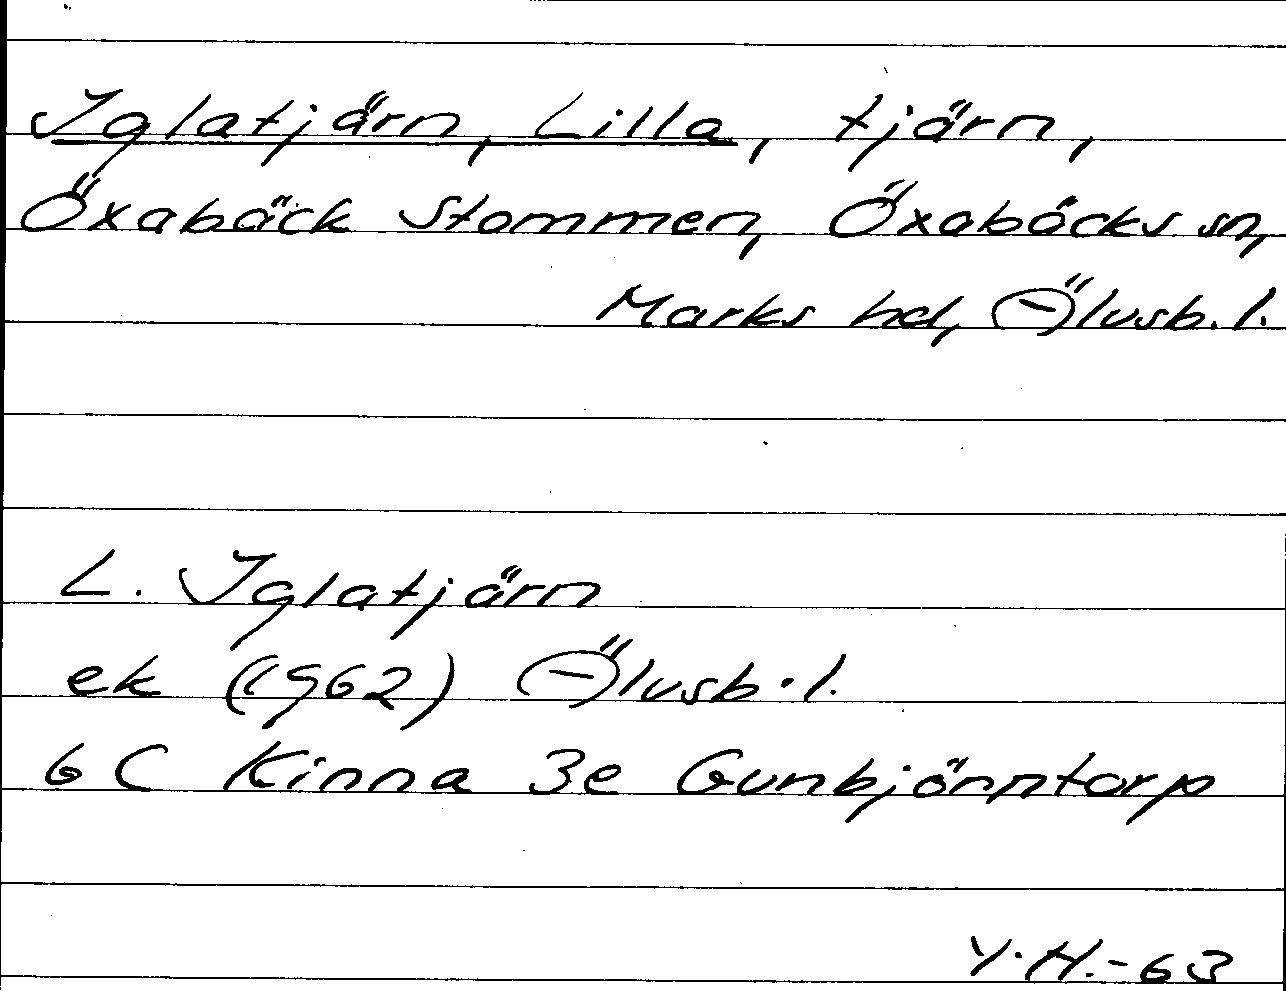 Iglatjärn, Lilla, tjärn,
Öxabäck Stommen, Öxabäcks sn,
Marks hd, Älvsb. l.
L. Iglatjärn
ek (1962) Älvsb. l.
6 C Kinna 3e Gunbjörntorp
Y.H.-63